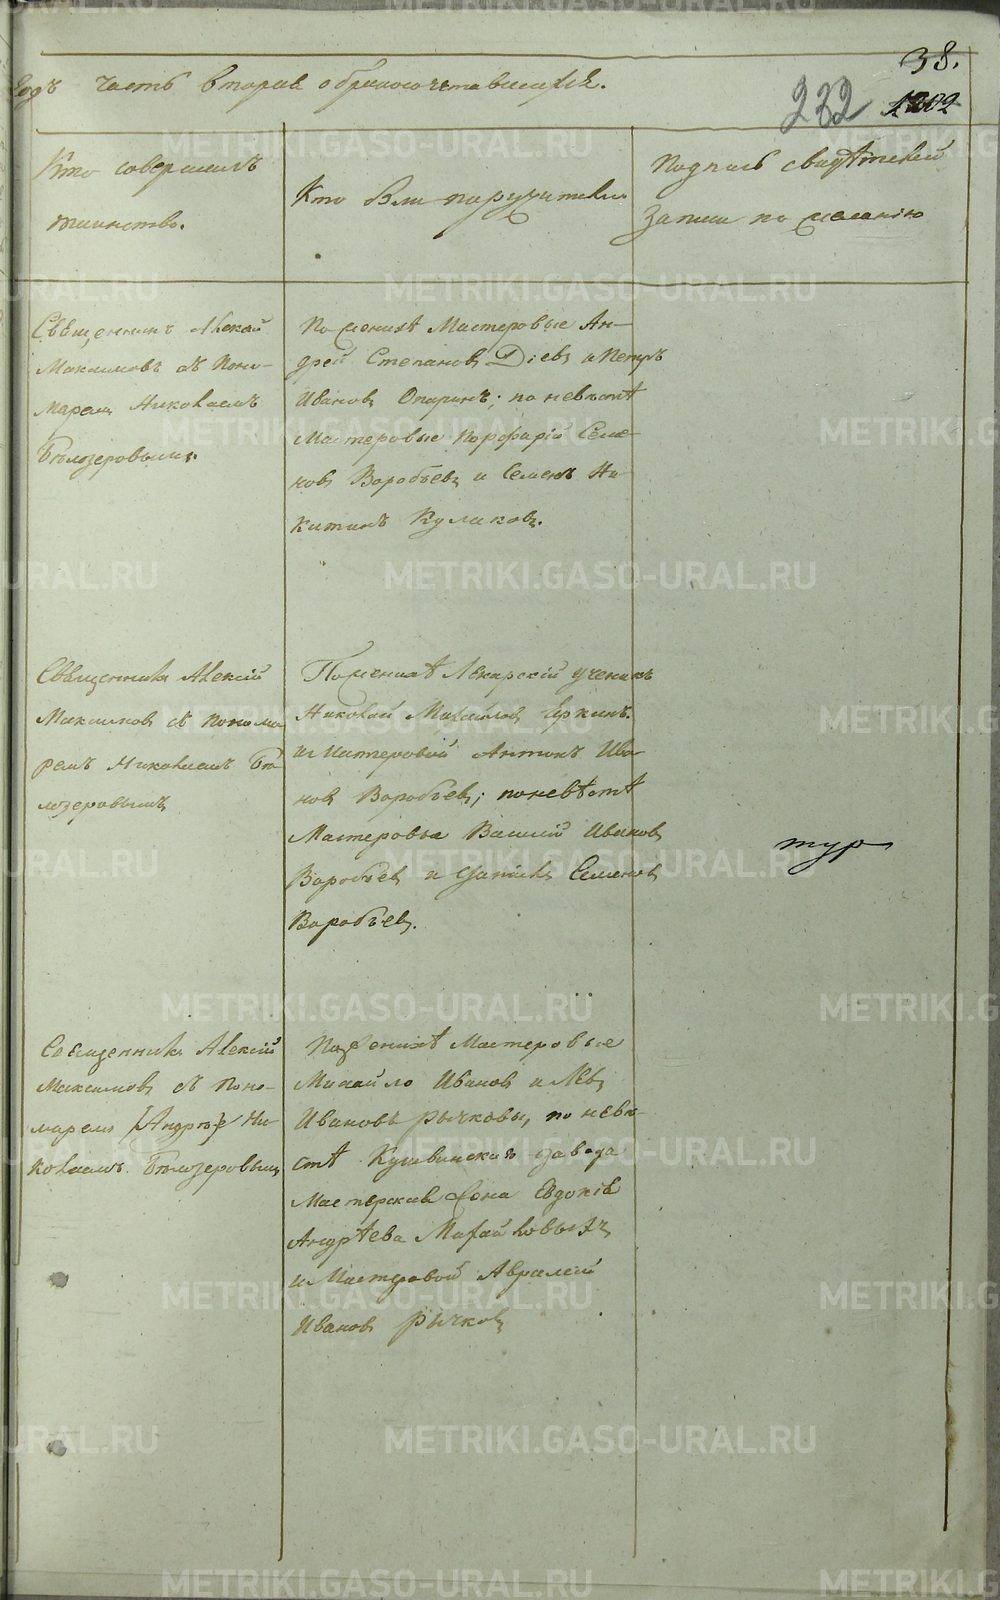 38.
годъ часть вторая о бракосочетавшихся.
232 1202
Кто совершилъ
таинство.
Кто были поручители
Подпись свидѣтелей
записи по желанію
Священникъ Алексѣй
Максимовъ съ Поно-
маремъ Николаемъ
Бѣлозеровымъ.
По женихѣ Мастеровые Ан-
дрей Степановъ Діевъ и Петръ
Ивановъ Опаринъ; по невѣстѣ
Мастеровые Порфирій Семе-
новъ Воробьевъ и Семенъ Ни-
китинъ Кулаковъ.
Священникъ Алексій
Максимовъ съ Понома
ремъ Николаемъ Бѣ
лозеровымъ
По женихѣ Лекарскій ученикъ
Николай Михайловъ Еркинъ.
и Мастеровой Антонъ Ива-
новъ Воробьевъ; по невѣстѣ
Мастеровые Василій Ивановъ
Воробьевъ и Семеновъ
Воробьевъ.
тур
Священникъ Алексій
Максимовъ съ Поно-
маремъ [Андрѣе] Ни-
колаемъ Бѣлозеровымъ
По женихѣ Мастеровые
Михайло Ивановъ и Левъ
Ивановъ Рычковы, по невѣ-
стѣ Кушвинскаго завода
Мастерская жона Евдокія
Андрѣева Михайловыхъ
и Мастеровой Авралій
Ивановъ Рычковъ
METRIKI.GASO-URAL.RU